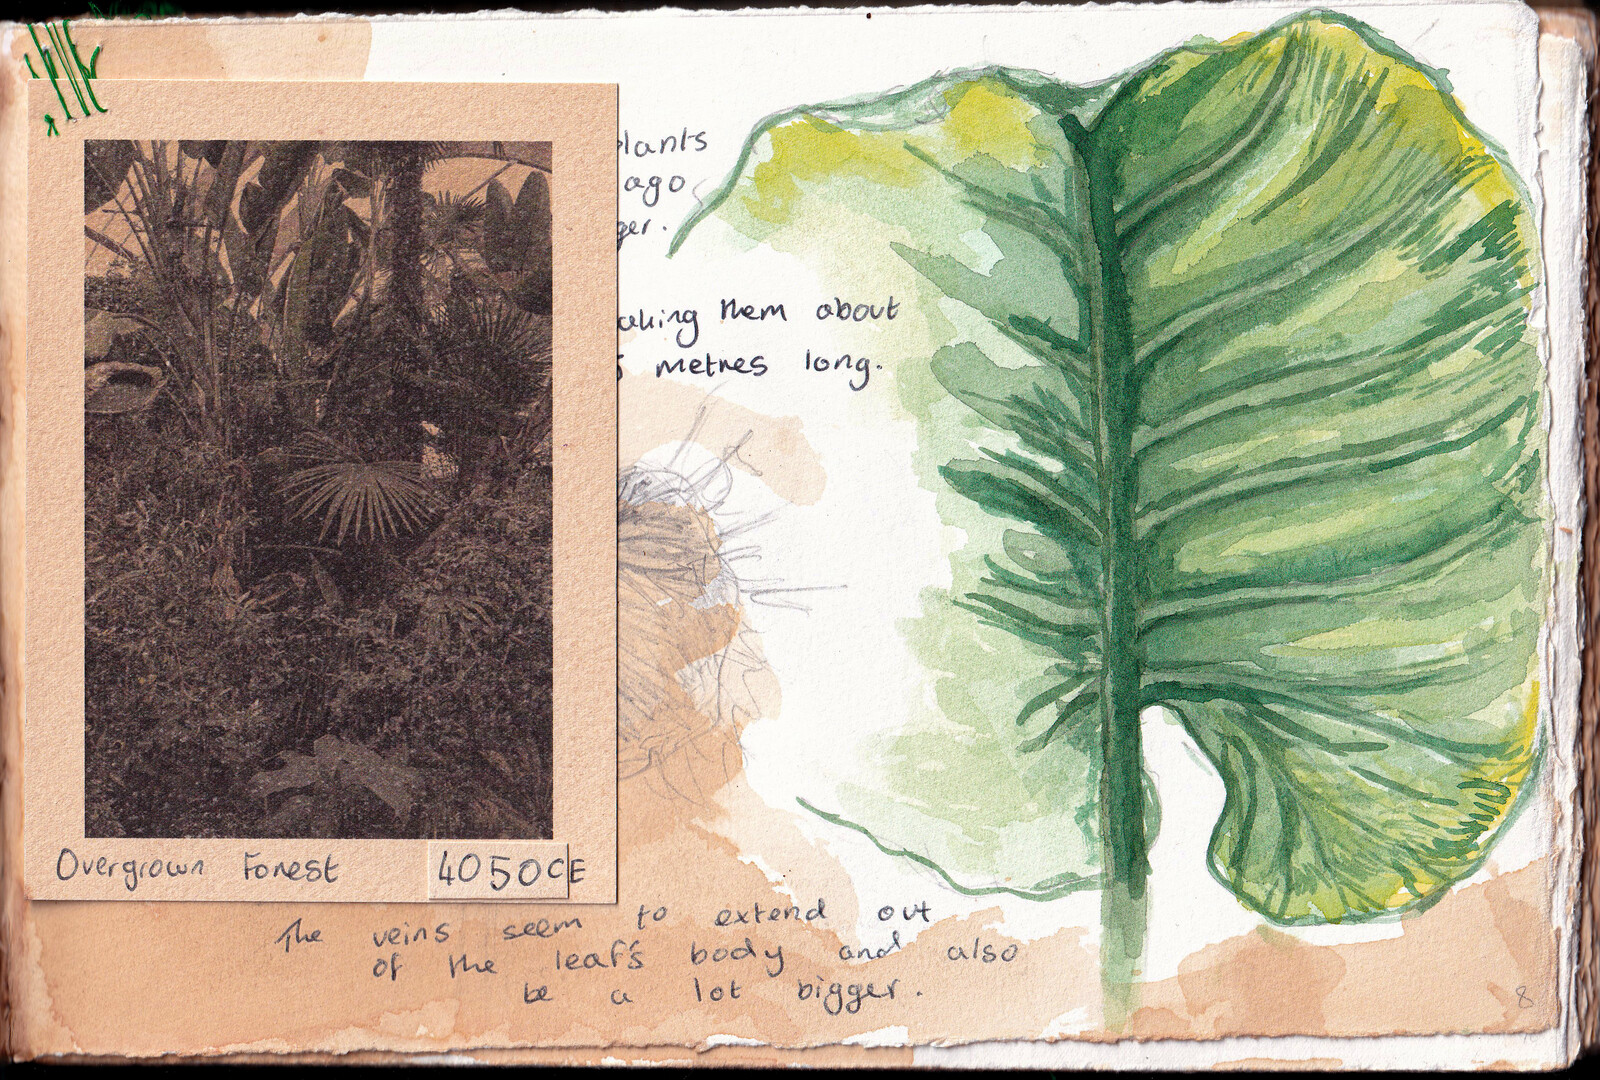 plants
ago
ger.
aking them about
5 metres long.
Overgrown Forest 4050CE
The veins seem to extend out
of the leaf's body and also
be a lot bigger.
8